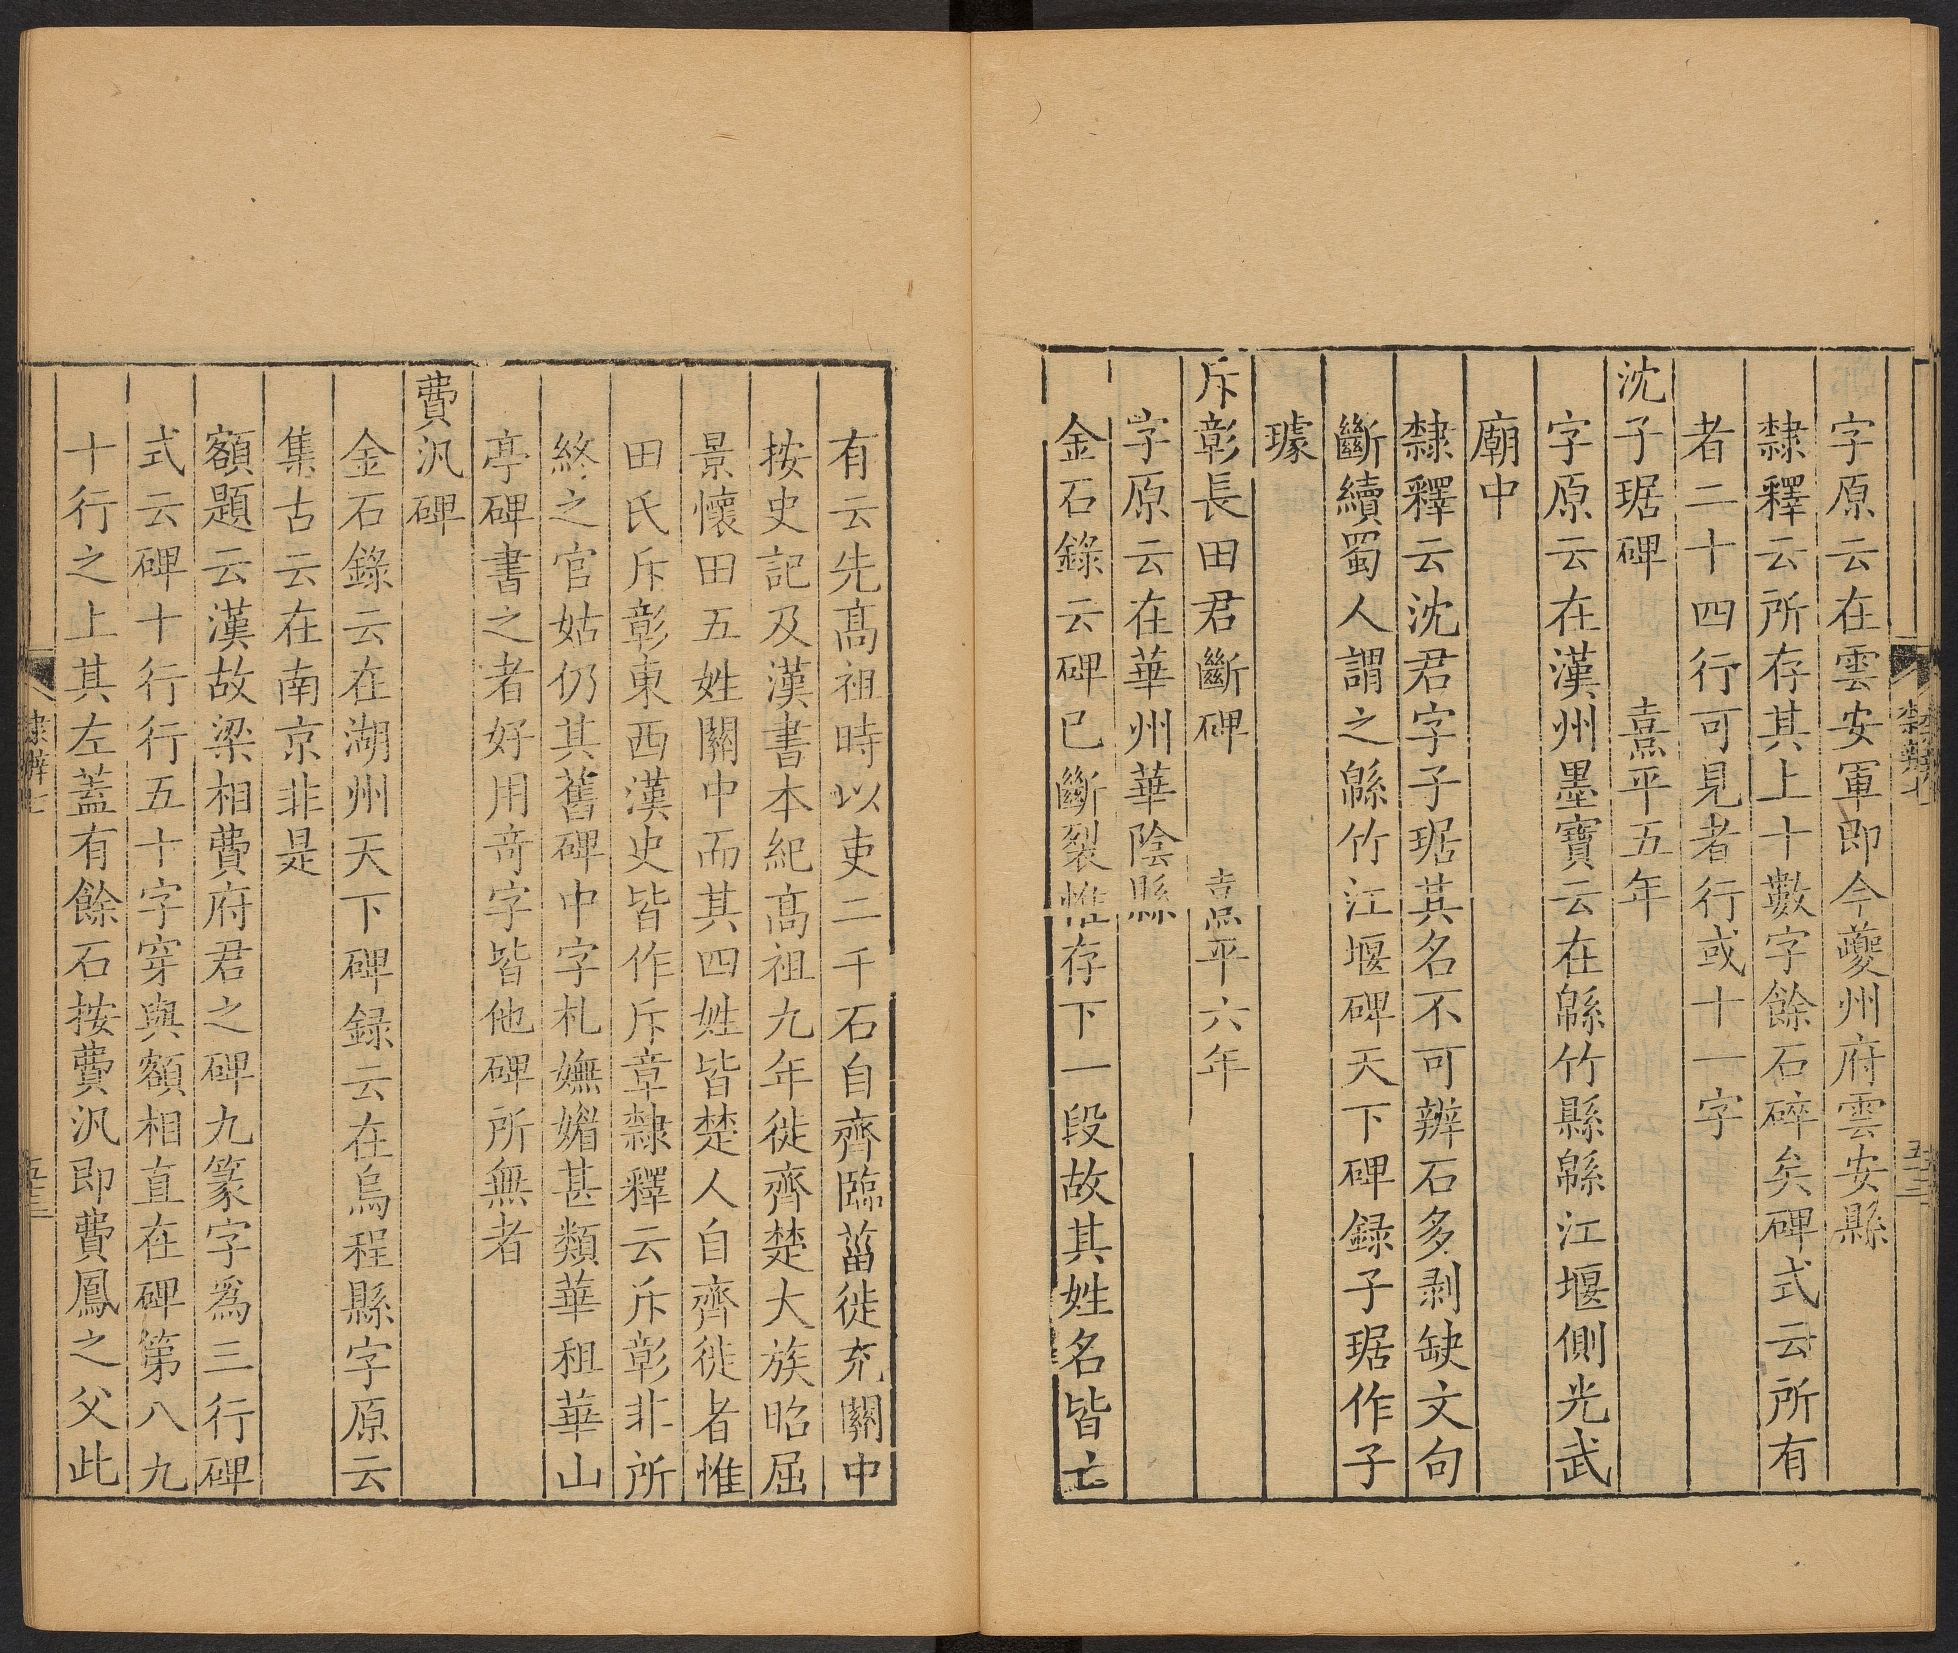 字原云在雲安軍即今夔州府雲安縣
隸釋云所存其上十數字餘石碎矣碑式云所有
者二十四行可見者行或十一字
沈子琚碑 熹平五年
字原云在漢州墨寶云在緜竹縣緜江堰側光武
廟中
隸釋云沈君字子琚其名不可辨石多剥缺文句
斷續蜀人謂之緜竹江堰碑天下碑録子琚作子
璩
斥彰長田君斷碑 熹平六年
字原云在華州華陰縣
金石錄云碑已斷裂惟存下一段故其姓名皆亡
有云先髙祖時以吏二千石自齊臨菑徙充關中
按史記及漢書本紀髙祖九年徙齊楚大族昭屈
景懷田五姓關中而其四姓皆楚人自齊徙者惟
田氏斥彰東西漢史皆作斥章隸釋云斥彰非所
終之官姑仍其舊碑中字札嫵媚甚類華租華山
亭碑書之者好用竒字皆他碑所無者
費汎碑
金石錄云在湖州天下碑録云在烏程縣字原云
集古云在南京非是
額題云漢故梁相費府君之碑九篆字爲三行碑
式云碑十行行五十字穿與額相直在碑第八九
十行之上其左蓋有餘石按費汎即費鳳之父此